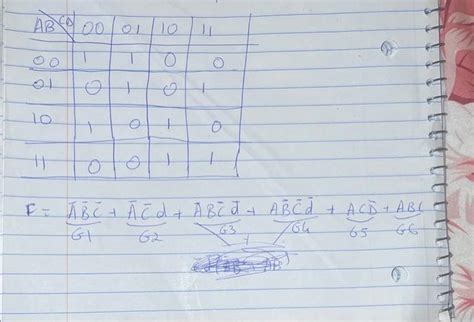 AB CD 00 01 10 11
00 1 1 0 0
01 0 1 0 1
10 1 0 1 0
11 0 0 1 1
F = A̅B̅C̅ + A̅C̅d + A̅BC̅d̅ + AB̅C̅d̅ + ACD̅ + ABC
G1 G2 G3 G4 G5 G6